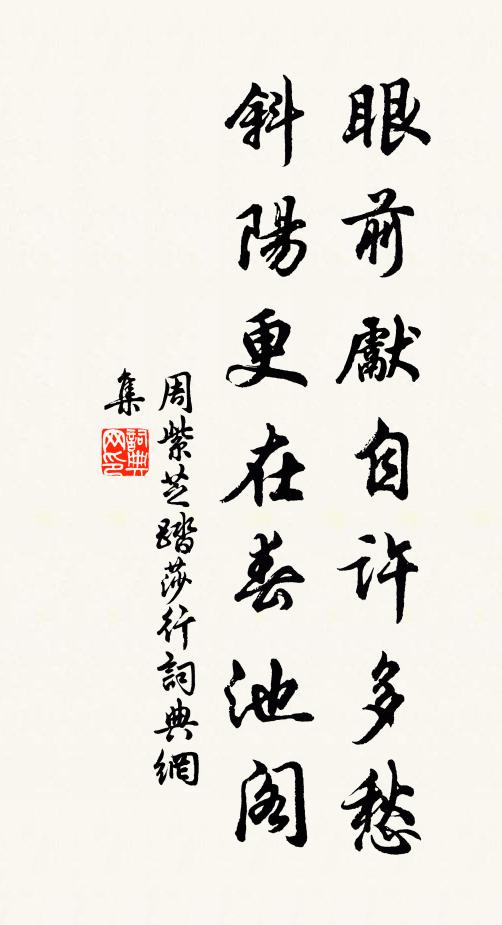 眼前獻自許多愁
斜陽更在春池閣
周紫芝踏莎行詞典網
集
詞典
网印